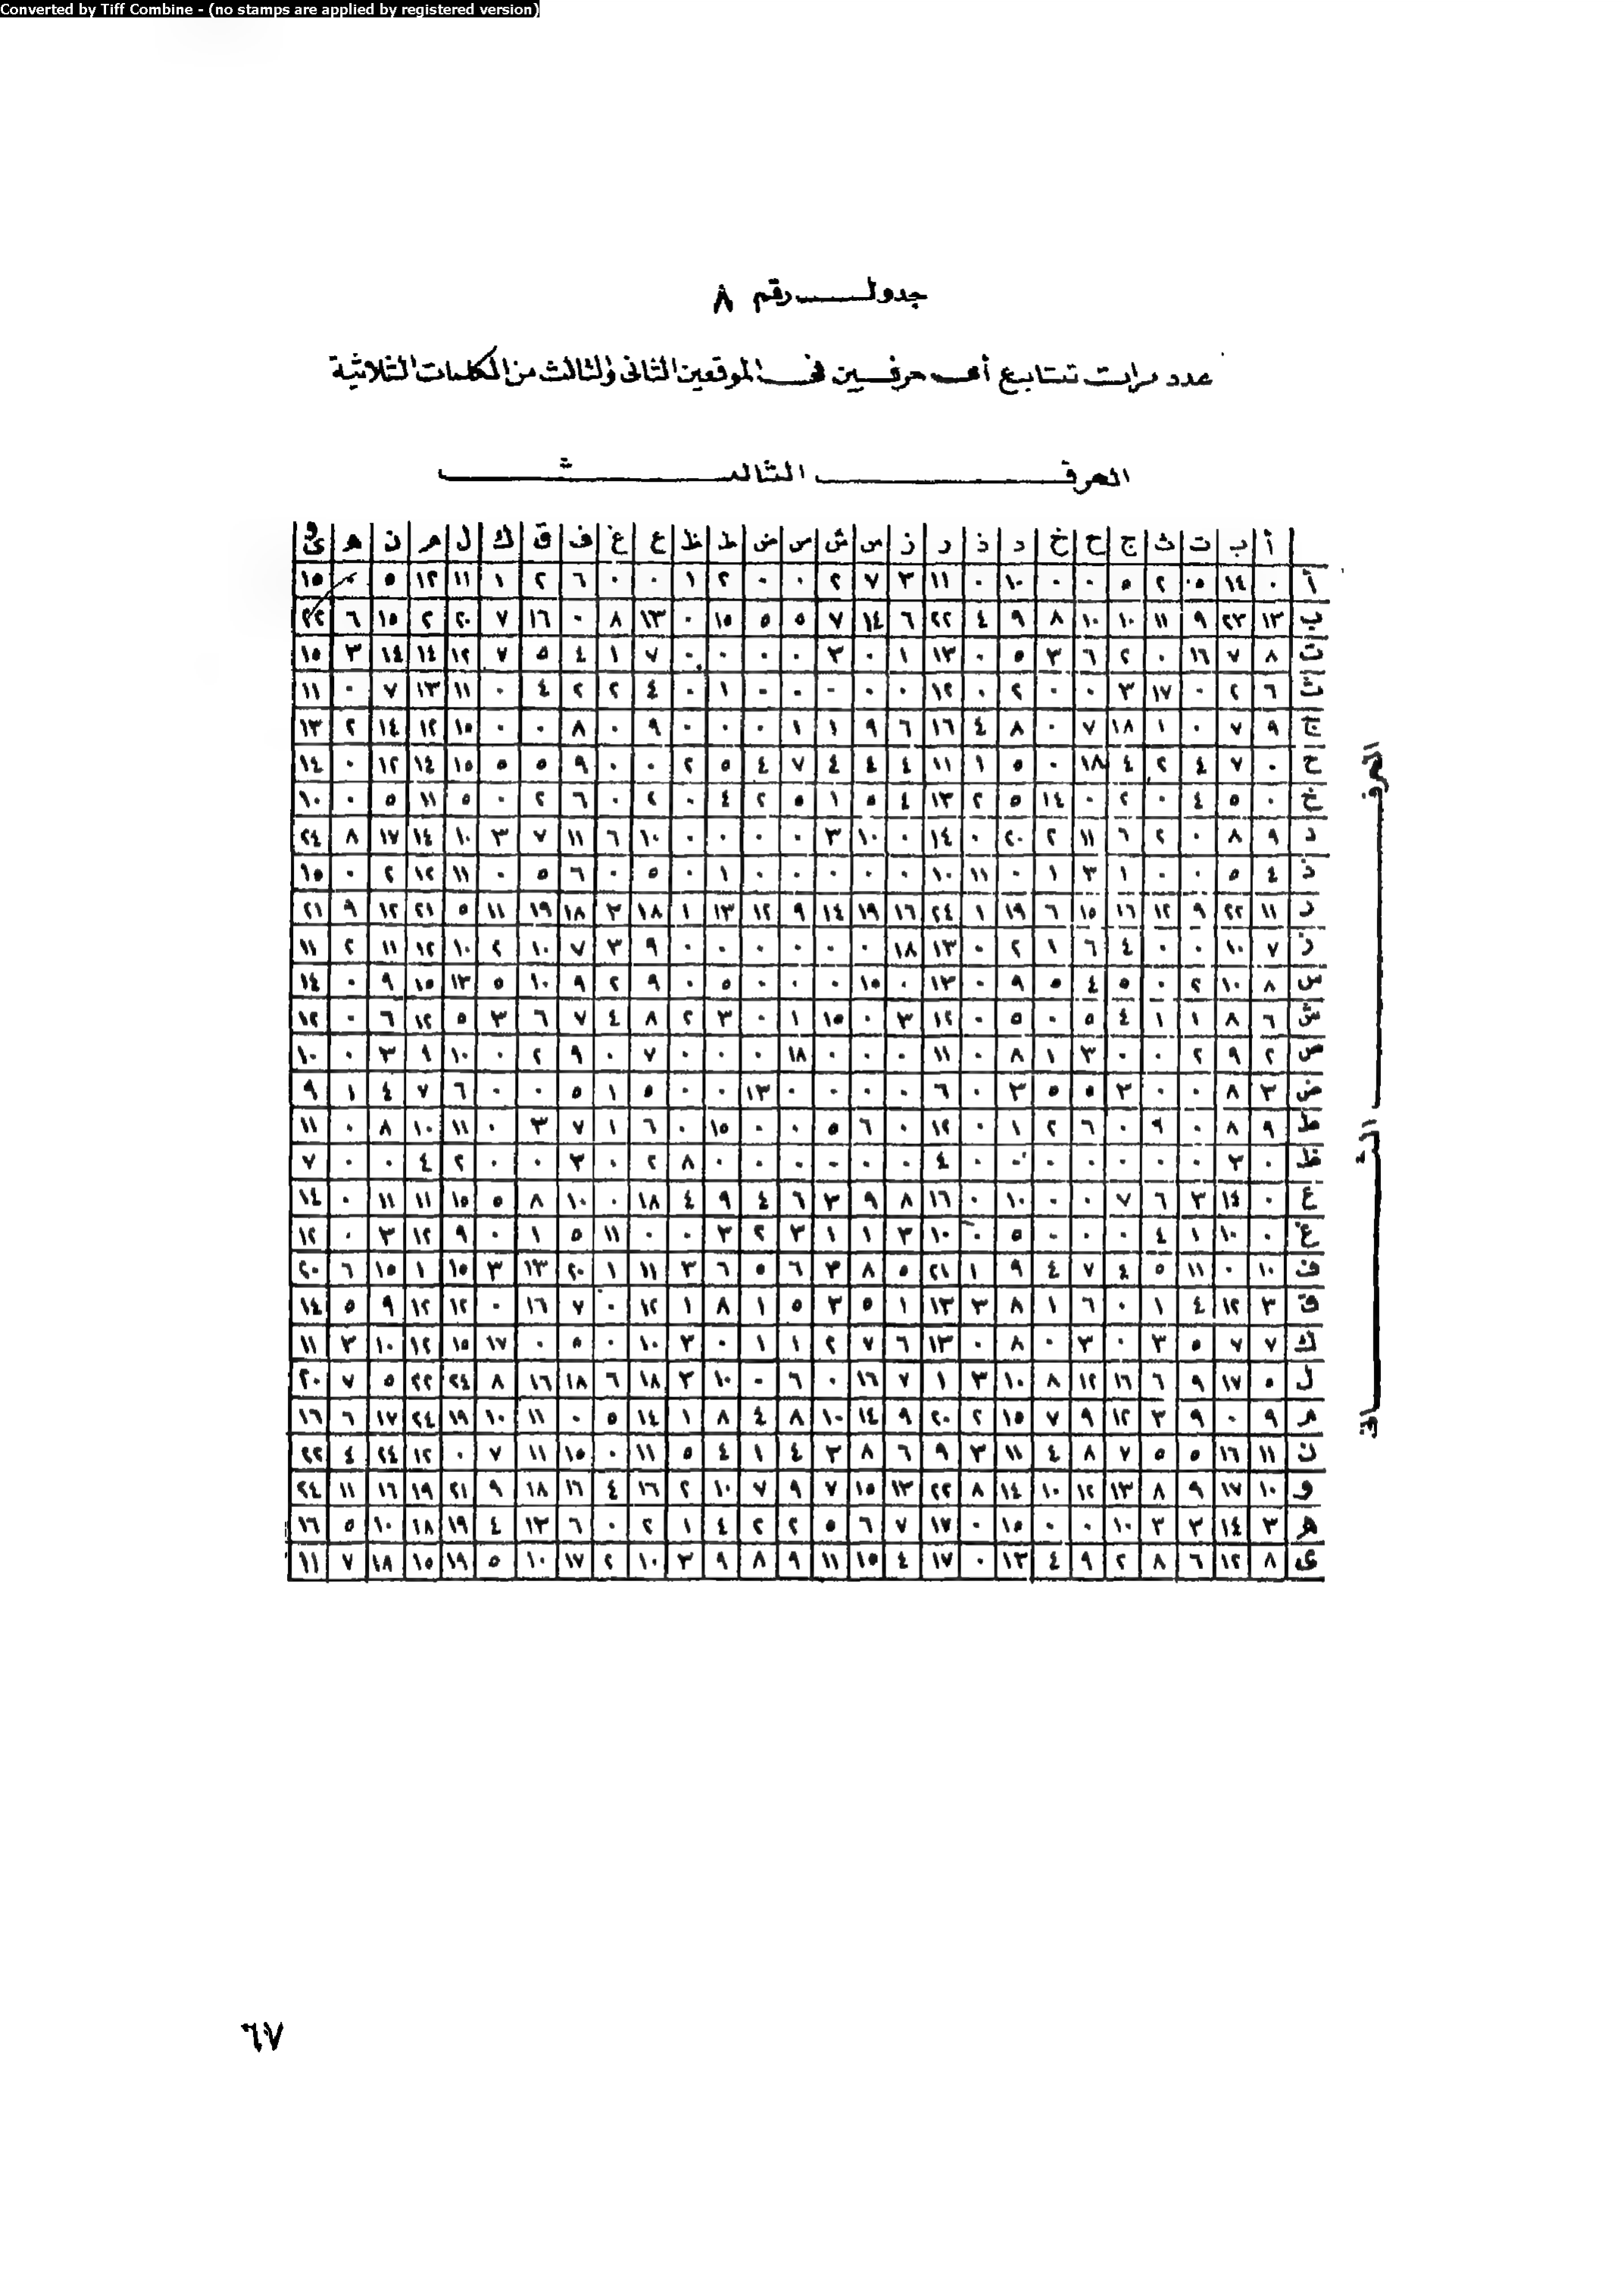 Converted by Tiff Combine - (no stamps are applied by registered version)
جدول رقم ٨
عدد مرات تتابع أى حرفين فى الموقعين الثانى والثالث من الكلمات الثلاثية
الحرف الثالث
أ ب ت ث ج ح خ د ذ ر ز س ش ص ض ط ظ ع غ ف ق ك ل م ن ه و ى
أ ٠ ١٤ ٥ ٢ ٥ ٠ ٠ ١٠ ٠ ١١ ٣ ٧ ٢ ٠ ٠ ٢ ١ ٠ ٠ ٦ ٢ ١ ١١ ١٢ ٥ ١٥
ب ١٣ ٢٣ ٩ ١١ ١٠ ١٠ ٨ ٩ ٤ ٢٢ ٦ ١٤ ٧ ٥ ٥ ١٥ ٠ ١٣ ٨ ٠ ١٦ ٧ ٢٠ ٢ ١٥ ٦ ٢٢
ت ٨ ٧ ١٦ ٠ ٢ ٦ ٣ ٥ ٠ ١٣ ١ ٠ ٣ ٠ ٠ ٠ ٠ ٧ ١ ٤ ٥ ٧ ١٢ ١٤ ١٤ ٣ ١٥
ث ٦ ٢ ٠ ١٧ ٣ ٠ ٠ ٢ ٠ ١٢ ٠ ٠ ٠ ٠ ٠ ١ ٠ ٤ ٢ ٢ ٤ ٠ ١١ ١٣ ٧ ٠ ١١
ج ٩ ٧ ٠ ١ ١٨ ٧ ٠ ٨ ٤ ١٦ ٦ ٩ ١ ١ ٠ ٠ ٠ ٩ ٠ ٨ ٠ ٠ ١٥ ١٢ ١٤ ٢ ١٣
ح ٠ ٧ ٤ ٢ ٤ ١٨ ٠ ٥ ١ ١١ ٤ ٤ ٤ ٧ ٤ ٥ ٢ ٠ ٠ ٩ ٥ ٥ ١٥ ١٤ ١٢ ٠ ١٤
خ ٠ ٥ ٤ ٠ ٢ ٠ ١٤ ٥ ٢ ١٣ ٤ ٥ ١ ٥ ٢ ٤ ٠ ٤ ٠ ٦ ٢ ٠ ٥ ١١ ٥ ٠ ١٠
د ٩ ٨ ٠ ٢ ٦ ١١ ٢ ٢٠ ٠ ١٤ ٠ ١٠ ٣ ٠ ٠ ٠ ٠ ١٠ ٦ ١١ ٧ ٣ ١٠ ١٤ ١٧ ٨ ٢٤
ذ ٤ ٥ ٠ ٠ ١ ٣ ١ ٠ ١١ ١٠ ٠ ٠ ٠ ٠ ٠ ١ ٠ ٥ ٠ ٦ ٥ ٠ ١١ ١٢ ٢ ٠ ١٥
ر ١١ ٢٢ ٩ ١٢ ١٦ ١٥ ٦ ١٩ ١ ٢٤ ١٦ ١٩ ١٤ ٩ ١٢ ١٣ ١ ١٨ ٣ ١٨ ١٩ ١١ ٥ ٢١ ١٢ ٩ ٢١
ز ٧ ١٠ ٠ ٠ ٤ ٦ ١ ٢ ٠ ١٣ ١٨ ٠ ٠ ٠ ٠ ٠ ٠ ٩ ٣ ٧ ١٠ ٢ ١٠ ١٢ ١١ ٢ ١١
س ٨ ١٠ ٢ ٠ ٥ ٤ ٥ ٩ ٠ ١٣ ٠ ١٥ ٠ ٠ ٠ ٥ ٠ ٩ ٢ ٩ ١٠ ٥ ١٣ ١٥ ٩ ٠ ١٤
ش ٦ ٨ ١ ١ ٤ ٥ ٠ ٥ ٠ ١٢ ٣ ٠ ١٥ ١ ٠ ٣ ٢ ٨ ٤ ٧ ٦ ٣ ٥ ١٢ ٦ ٠ ١٢
ص ٢ ٩ ٢ ٠ ٠ ٣ ١ ٨ ٠ ١١ ٠ ٠ ٠ ١٨ ٠ ٠ ٠ ٧ ٠ ٩ ٢ ٠ ١٠ ٩ ٣ ٠ ١٠
ض ٣ ٨ ٠ ٠ ٣ ٥ ٥ ٣ ٠ ٦ ٠ ٠ ٠ ٠ ١٣ ٠ ٠ ٥ ١ ٥ ٠ ٠ ٦ ٧ ٤ ١ ٩
ط ٩ ٨ ٠ ٩ ٠ ٦ ٢ ١ ٠ ١٢ ٠ ٦ ٥ ٠ ٠ ١٥ ٠ ٦ ١ ٧ ٣ ٠ ١١ ١٠ ٨ ٠ ١١
ظ ٠ ٣ ٠ ٠ ٠ ٠ ٠ ٠ ٠ ٤ ٠ ٠ ٠ ٠ ٠ ٠ ٨ ٢ ٠ ٣ ٠ ٠ ٢ ٤ ٠ ٠ ٧
ع ٠ ١٤ ٣ ٦ ٧ ٠ ٠ ١٠ ٠ ١٦ ٨ ٩ ٣ ٦ ٤ ٩ ٤ ١٨ ٠ ١٠ ٨ ٥ ١٥ ١١ ١١ ٠ ١٤
غ ٠ ١٠ ١ ٤ ٠ ٠ ٠ ٥ ٠ ١٠ ٣ ١ ١ ٣ ٢ ٣ ٠ ٠ ١١ ٥ ١ ٠ ٩ ١٢ ٣ ٠ ١٢
ف ١٠ ٠ ١١ ٥ ٤ ٧ ٤ ٩ ١ ٢١ ٥ ٨ ٣ ٦ ٥ ٦ ٣ ١١ ١ ٢٠ ١٣ ٣ ١٥ ١ ١٥ ٦ ٢٠
ق ٣ ١٢ ٤ ١ ٠ ٦ ١ ٨ ٣ ١٣ ١ ٥ ٣ ٥ ١ ٨ ١ ١٢ ٠ ٧ ١٦ ٠ ١٢ ١٢ ٩ ٥ ١٤
ك ٧ ٧ ٥ ٣ ٠ ٣ ٠ ٨ ٠ ١٣ ٦ ٧ ٢ ١ ١ ٠ ٣ ١٠ ٠ ٥ ٠ ١٧ ١٥ ١٢ ١٠ ٣ ١١
ل ٥ ١٧ ٩ ٦ ١٦ ١٢ ٨ ١٠ ٣ ١ ٧ ١٦ ٠ ٦ ٠ ١٠ ٣ ١٨ ٦ ١٨ ١٦ ٨ ٢٤ ٢٢ ٥ ٧ ٢٠
م ٩ ٠ ٩ ٣ ١٢ ٩ ٧ ١٥ ٢ ٢٠ ٩ ١٤ ١٠ ٨ ٤ ٨ ١ ١٤ ٥ ٠ ١١ ١٠ ١٩ ٢٤ ١٧ ٦ ١٦
ن ١١ ١٦ ٥ ٥ ٧ ٨ ٤ ١١ ٣ ٩ ٦ ٨ ٣ ٤ ١ ٤ ٥ ١١ ٠ ١٥ ١١ ٧ ٠ ١٢ ٢٤ ٤ ٢٢
و ١٠ ١٧ ٩ ٨ ١٣ ١٢ ١٠ ١٤ ٨ ٢٢ ١٣ ١٥ ٧ ٩ ٧ ١٠ ٢ ١٦ ٤ ١٦ ١٨ ٩ ٢١ ١٩ ١٦ ١١ ٢٤
ه ٣ ١٤ ٣ ٣ ١٠ ٠ ٠ ١٥ ٠ ١٧ ٧ ٦ ٥ ٢ ٢ ٤ ١ ٢ ٠ ٦ ١٣ ٤ ١٩ ١٨ ١٠ ٥ ١٦
ى ٨ ١٢ ٦ ٨ ٢ ٩ ٤ ١٣ ٠ ١٧ ٤ ١٥ ١١ ٩ ٨ ٩ ٣ ١٠ ٢ ١٧ ١٠ ٥ ١٩ ١٥ ١٨ ٧ ١١
الحرف الثانى
٦٧